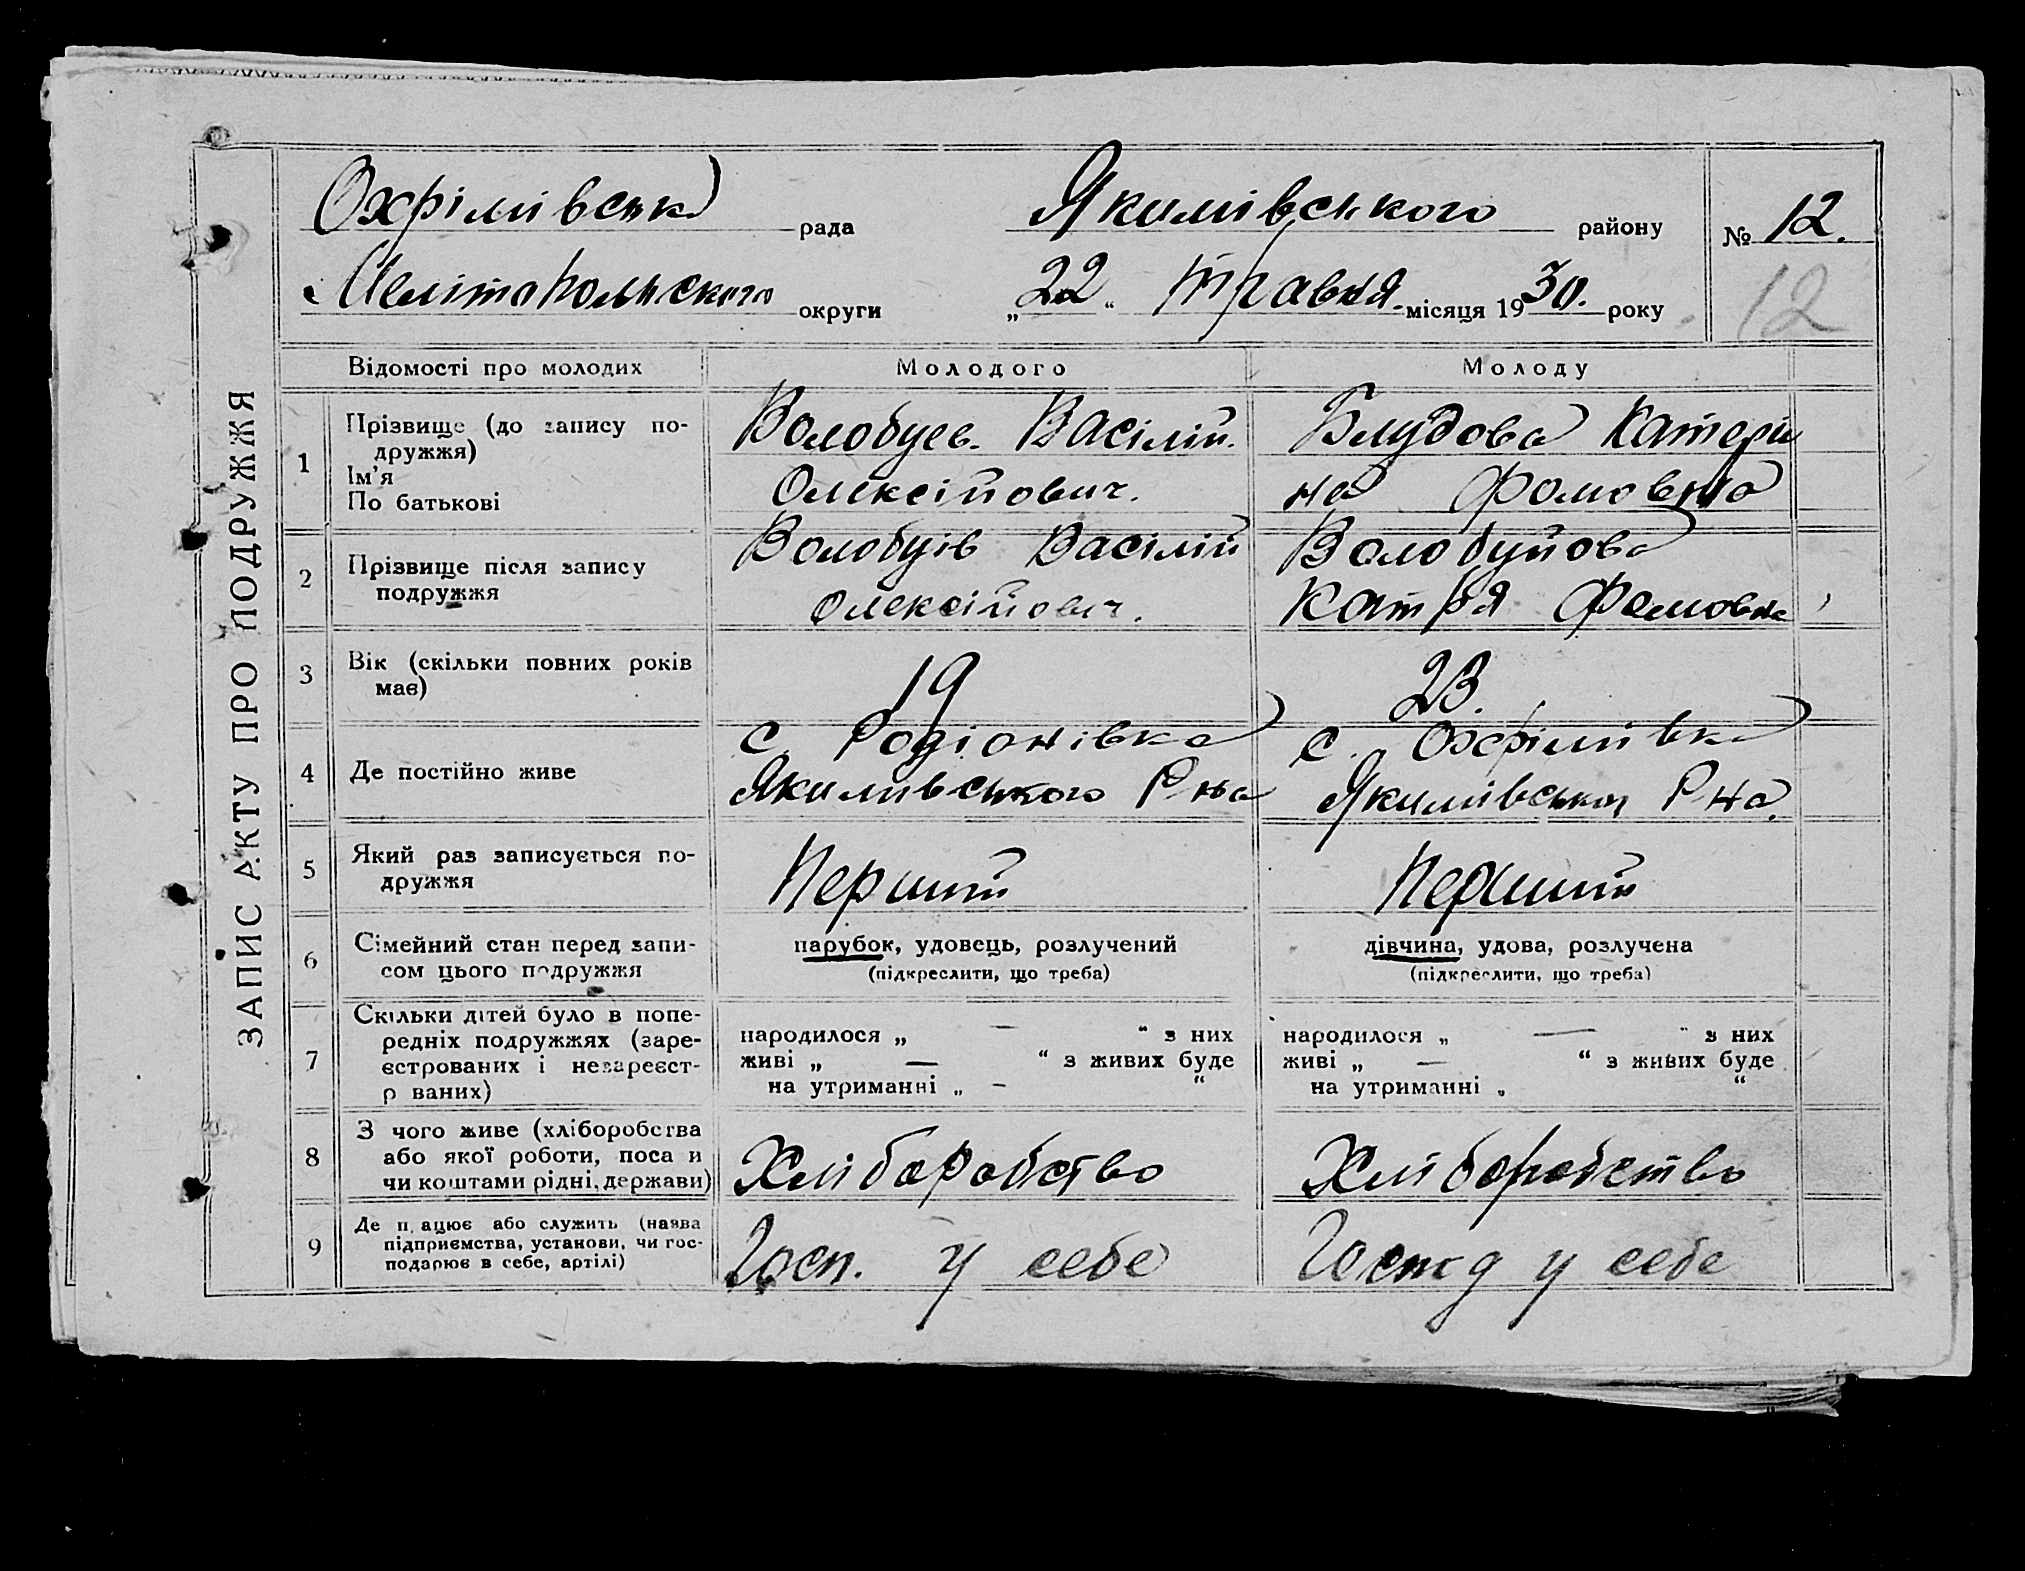 ЗАПИС АКТУ ПРО ПОДРУЖЖЯ
Охрімівська рада Якимівського району № 12.
Мелітопольского округи „22“ травня місяця 1930. року 12
Відомості про молодих Молодого Молоду
1 Прізвище (до запису по-
дружжя)
Ім'я
По батькові
Волобуев Васілій.
Олексійович.
Блудова Катери
на Фомовна
2 Прізвище після запису
подружжя
Волобуів Васілій
Олексійович.
Волобуйова
Катря Фомовна
3 Вік (скільки повних років
має)
19
23.
4 Де постійно живе
с. Родіонівка
Якимівського Р на
с. Охрімівка
Якимівськог Р на.
5 Який раз записується по-
дружжя
Перший
Перший
6 Сімейний стан перед запи-
сом цього подружжя
парубок, удовець, розлучений
(підкреслити, що треба)
дівчина, удова, розлучена
(підкреслити, що треба)
7 Скільки дітей було в попе-
редніх подружжях (заре-
єстрованих і незареєст-
р ваних)
народилося „ — “ з них
живі „ — “ з живих буде
на утриманні „ - “
народилося „ — “ з них
живі „ — “ з живих буде
на утриманні „ “
8 З чого живе (хліборобства
або якої роботи, поса и
чи коштами рідні, держави)
Хліборобство
Хліборобство
9 Де п ацює або служить (назва
підприємства, установи, чи гос-
подарює в себе, артілі)
Госп. у себе
Господ у себе